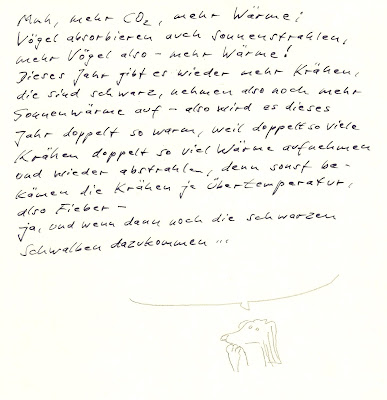 Muh, mehr CO₂, mehr Wärme!
Vögel absorbieren auch Sonnenstrahlen,
mehr Vögel also – mehr Wärme!
Dieses Jahr gibt es wieder mehr Krähen,
die sind schwarz, nehmen also noch mehr
Sonnenwärme auf – also wird es dieses
Jahr doppelt so warm, weil doppelt so viele
Krähen doppelt so viel Wärme aufnehmen
und wieder abstrahlen, denn sonst be-
kämen die Krähen ja Übertemperatur,
also Fieber –
ja, und wenn dann noch die schwarzen
Schwalben dazukommen ...